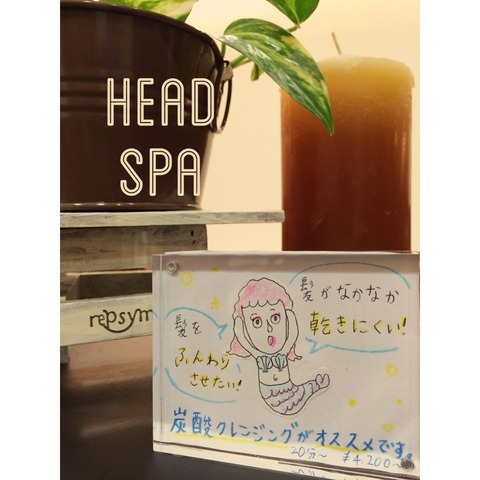 HEAD
SPA
repsym
髪がなかなか
乾きにくい!
髪を
ふんわり
させたい!
炭酸クレンジングがオススメです。
20分〜 ¥4,200〜